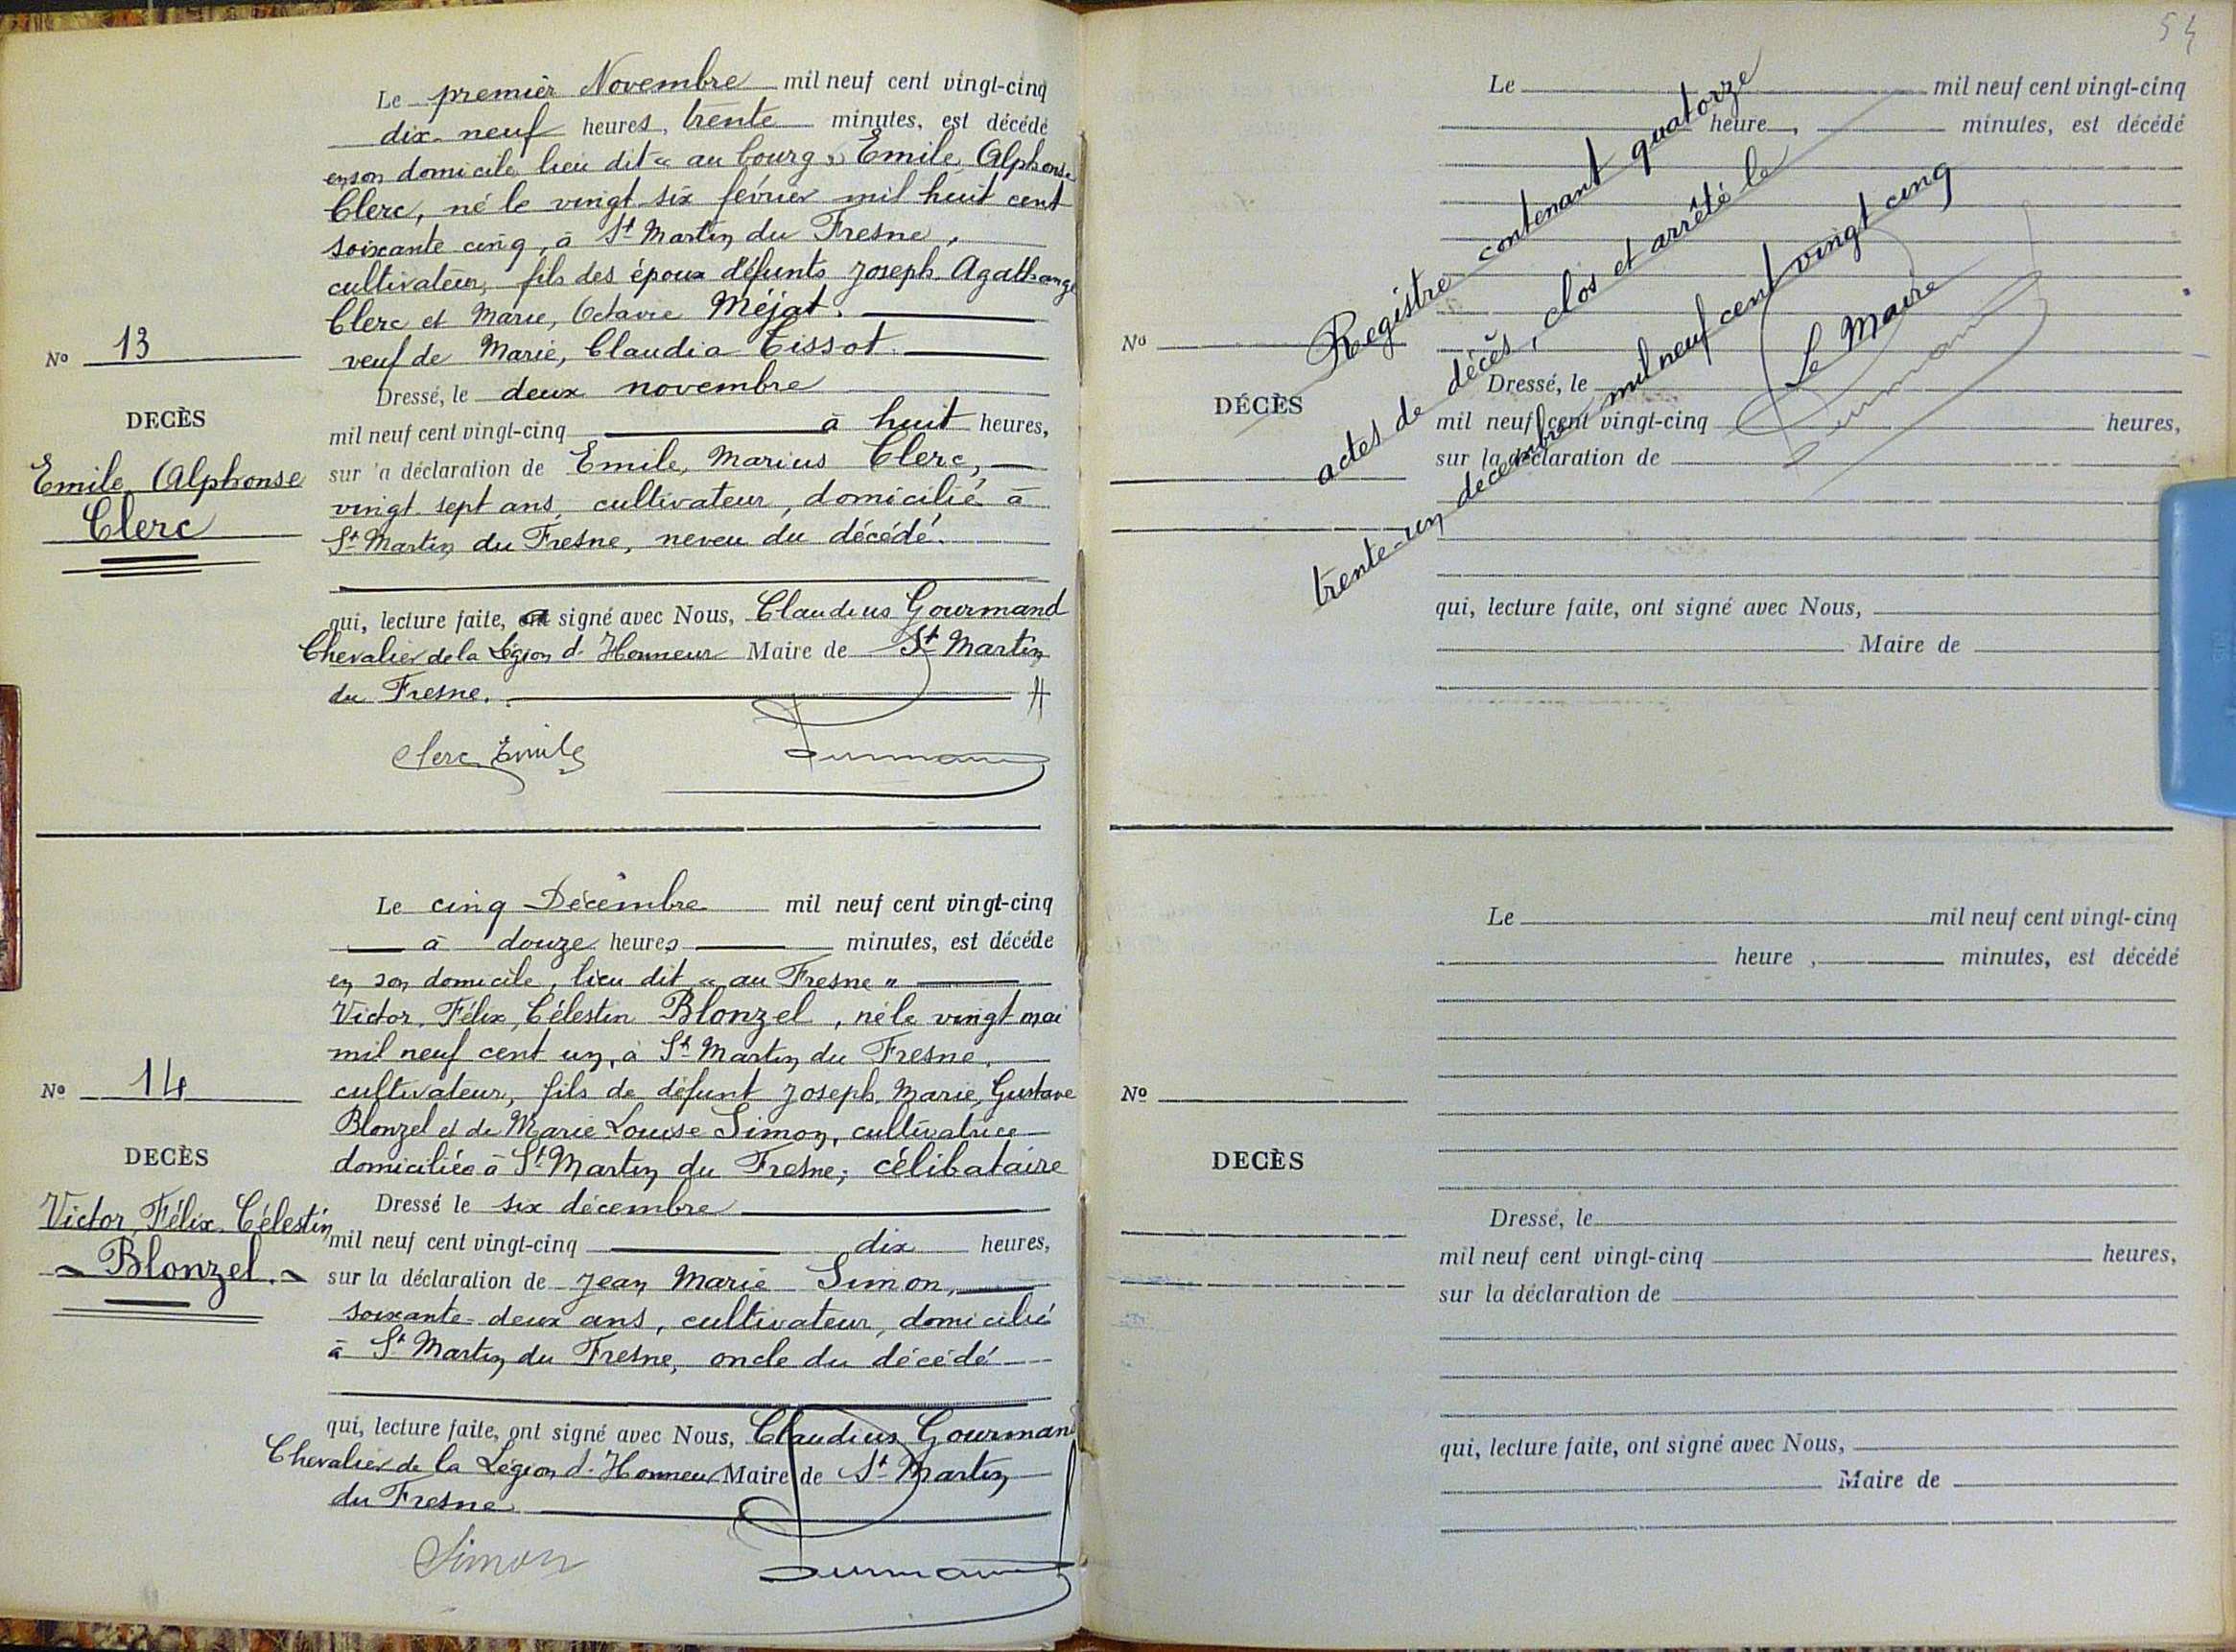 Le premier Novembre mil neuf cent vingt-cinq
dix-neuf heures, trente minutes, est décédé
en son domicile lieu dit « au bourg » Emile, Alphonse
Clerc, né le vingt six février mil huit cent
soixante cinq, à St Martin du Fresne,
cultivateur, fils des époux défunts Joseph Agathange
Clerc et Marie, Octavie Méjat.
veuf de Marie, Claudia Tissot.
Dressé, le deux novembre
mil neuf cent vingt-cinq à huit heures,
sur la déclaration de Emile, Marius Clerc,
vingt sept ans, cultivateur, domicilié à
St Martin du Fresne, neveu du décédé.
qui, lecture faite, a signé avec Nous, Claudius Gourmand
Chevalier de la Légion d'Honneur Maire de St Martin
du Fresne.
Clerc Emile
No 13
DECÈS
Emile Alphonse
Clerc
Le cinq Décembre mil neuf cent vingt-cinq
à douze heures minutes, est décédé
en son domicile, lieu dit « au Fresne »
Victor, Félix, Célestin Blonzel, né le vingt mai
mil neuf cent un, à St Martin du Fresne,
cultivateur, fils de défunt Joseph, Marie, Gustave
Blonzel et de Marie Louise Simon, cultivatrice
domiciliée à St Martin du Fresne; célibataire
Dressé le six décembre
mil neuf cent vingt-cinq dix heures,
sur la déclaration de Jean Marie Simon,
soixante-deux ans, cultivateur, domicilié
à St Martin du Fresne, oncle du décédé
qui, lecture faite, ont signé avec Nous, Claudius Gourmand
Chevalier de la Légion d'Honneur Maire de St Martin
du Fresne
Simon
No 14
DECÈS
Victor, Félix, Célestin
Blonzel.
54
Le mil neuf cent vingt-cinq
heure , minutes, est décédé
No
DÉCÈS
Dressé, le
mil neuf cent vingt-cinq heures,
sur la déclaration de
qui, lecture faite, ont signé avec Nous,
Maire de
Registre contenant quatorze
actes de décès, clos et arrêté le
trente-un décembre mil neuf cent vingt cinq
Le Maire
Le mil neuf cent vingt-cinq
heure , minutes, est décédé
No
DECÈS
Dressé, le
mil neuf cent vingt-cinq heures,
sur la déclaration de
qui, lecture faite, ont signé avec Nous,
Maire de